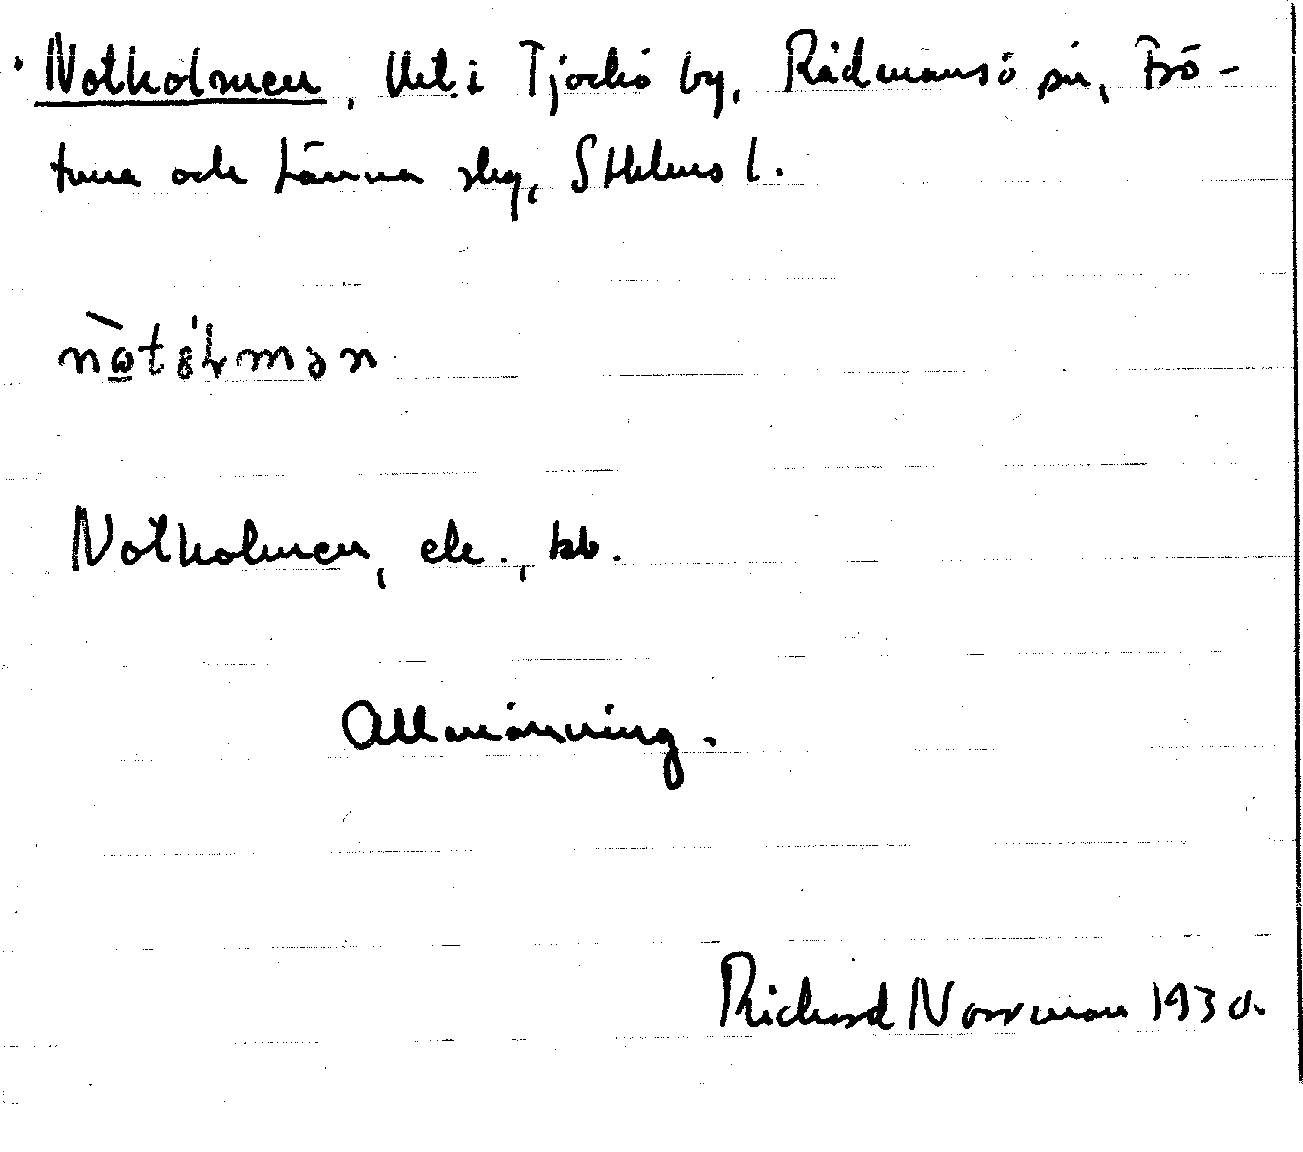 Notholmen, Utt. i Tjockö by, Rådmansö sn, Frö-
tuna och Länna skg, Sthlms l.
nòtól̵mən
Notholmen, ek., kb.
Allmänning.
Richard Norrman 1930.